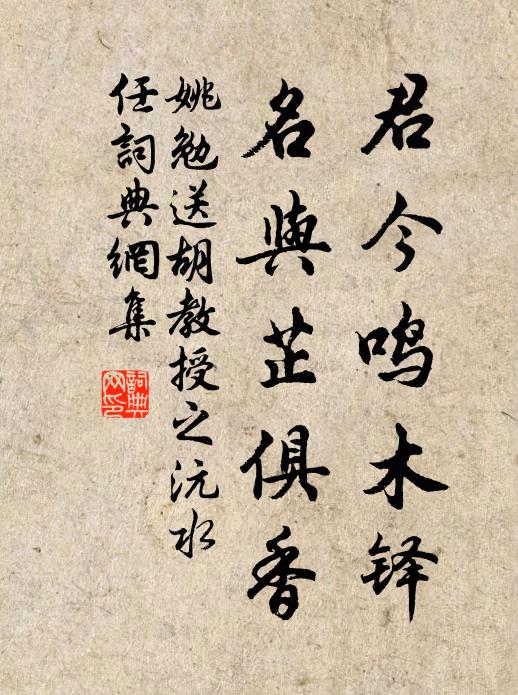 君今鸣木铎
名與芷俱香
姚勉送胡教授之沅水
任詞典網集
詞典網印